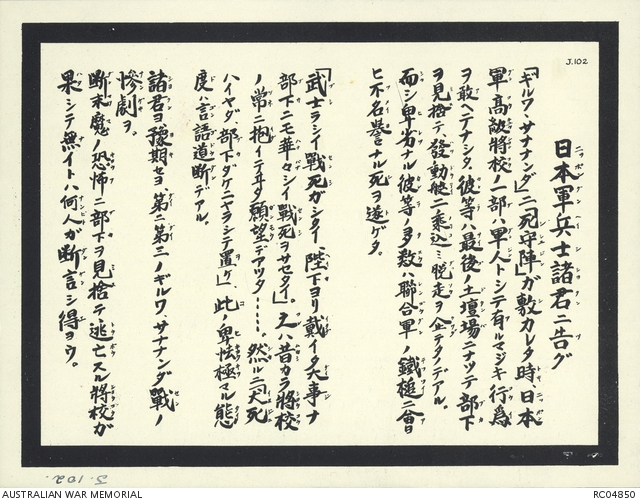 J.102
日本軍兵士諸君ニ告グ
「ギルワ、サナナンダ」ニ「死守陣」ガ敷カレタ時、日本
軍高級将校ノ一部ハ軍人トシテ有ルマジキ行為
ヲ敢ヘテナシタ。彼等ハ最後ノ土壇場ニナツテ部下
ヲ見捨テ、發動艇ニ乗込ミ脱走ヲ企テタノデアル。
而シ卑劣ナル彼等ノ多数ハ聯合軍ノ鐵槌ニ會ヒ
不名誉ナル死ヲ遂ゲタ。
「武士ラシイ戰死ガシタイ、陛下ヨリ戴イタ大事ナ
部下ニモ華々シイ戰死ヲサセタイ」。之ハ昔カラ将校
ノ常ニ抱イテヰタ願望デアツタ……。然ルニ「犬死
ハイヤダ、部下ダケニヤラシテ置ケ」、此ノ卑怯極マル態
度、言語道断デアル。
諸君ヨ、豫期セヨ、第二第三ノギルワ、サナナンダ戰ノ
惨劇ヲ。
断末魔ノ恐怖ニ部下ヲ見捨テ、逃亡スル将校ガ
果シテ無イトハ何人ガ断言シ得ヨウ。
J.102.
AUSTRALIAN WAR MEMORIAL
RC04850